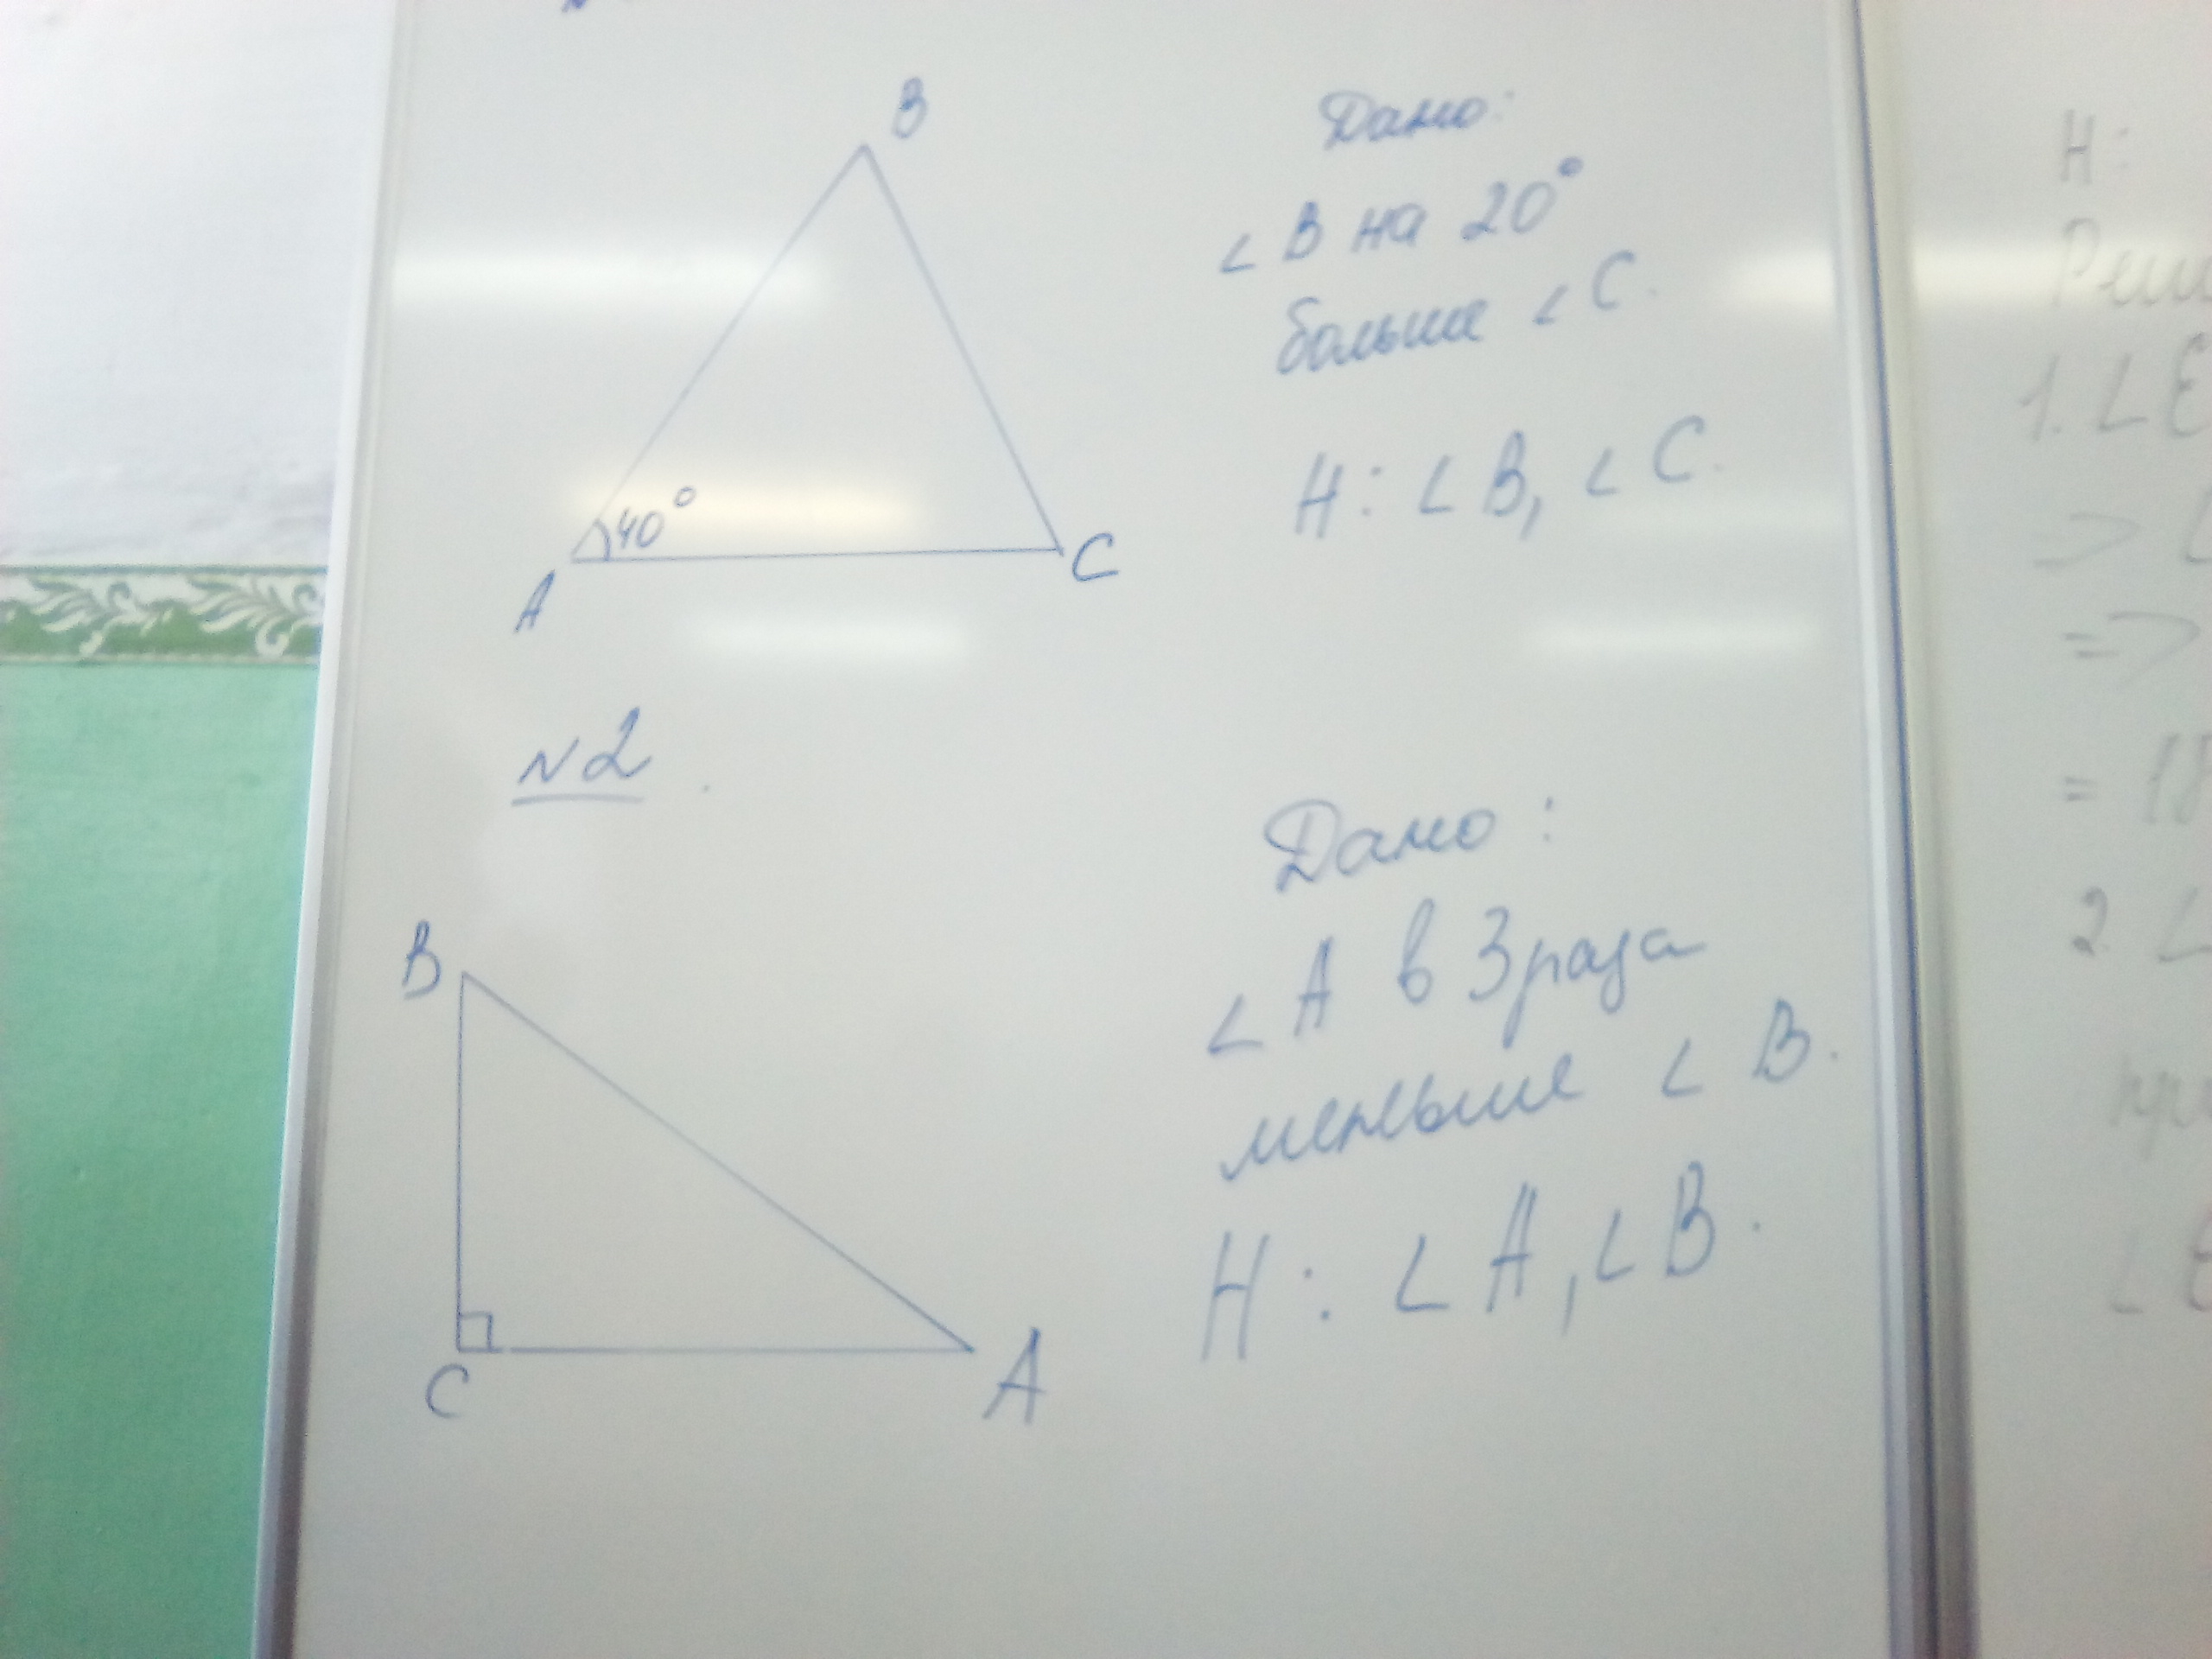 B
40°
A
C
Дано:
∠B на 20°
больше ∠C.
Н: ∠B, ∠C.
N2.
B
C
A
Дано:
∠A в 3 раза
меньше ∠B.
Н: ∠A, ∠B.
Н:
1. ∠E
=>
=>
= 18
2 ∠
∠